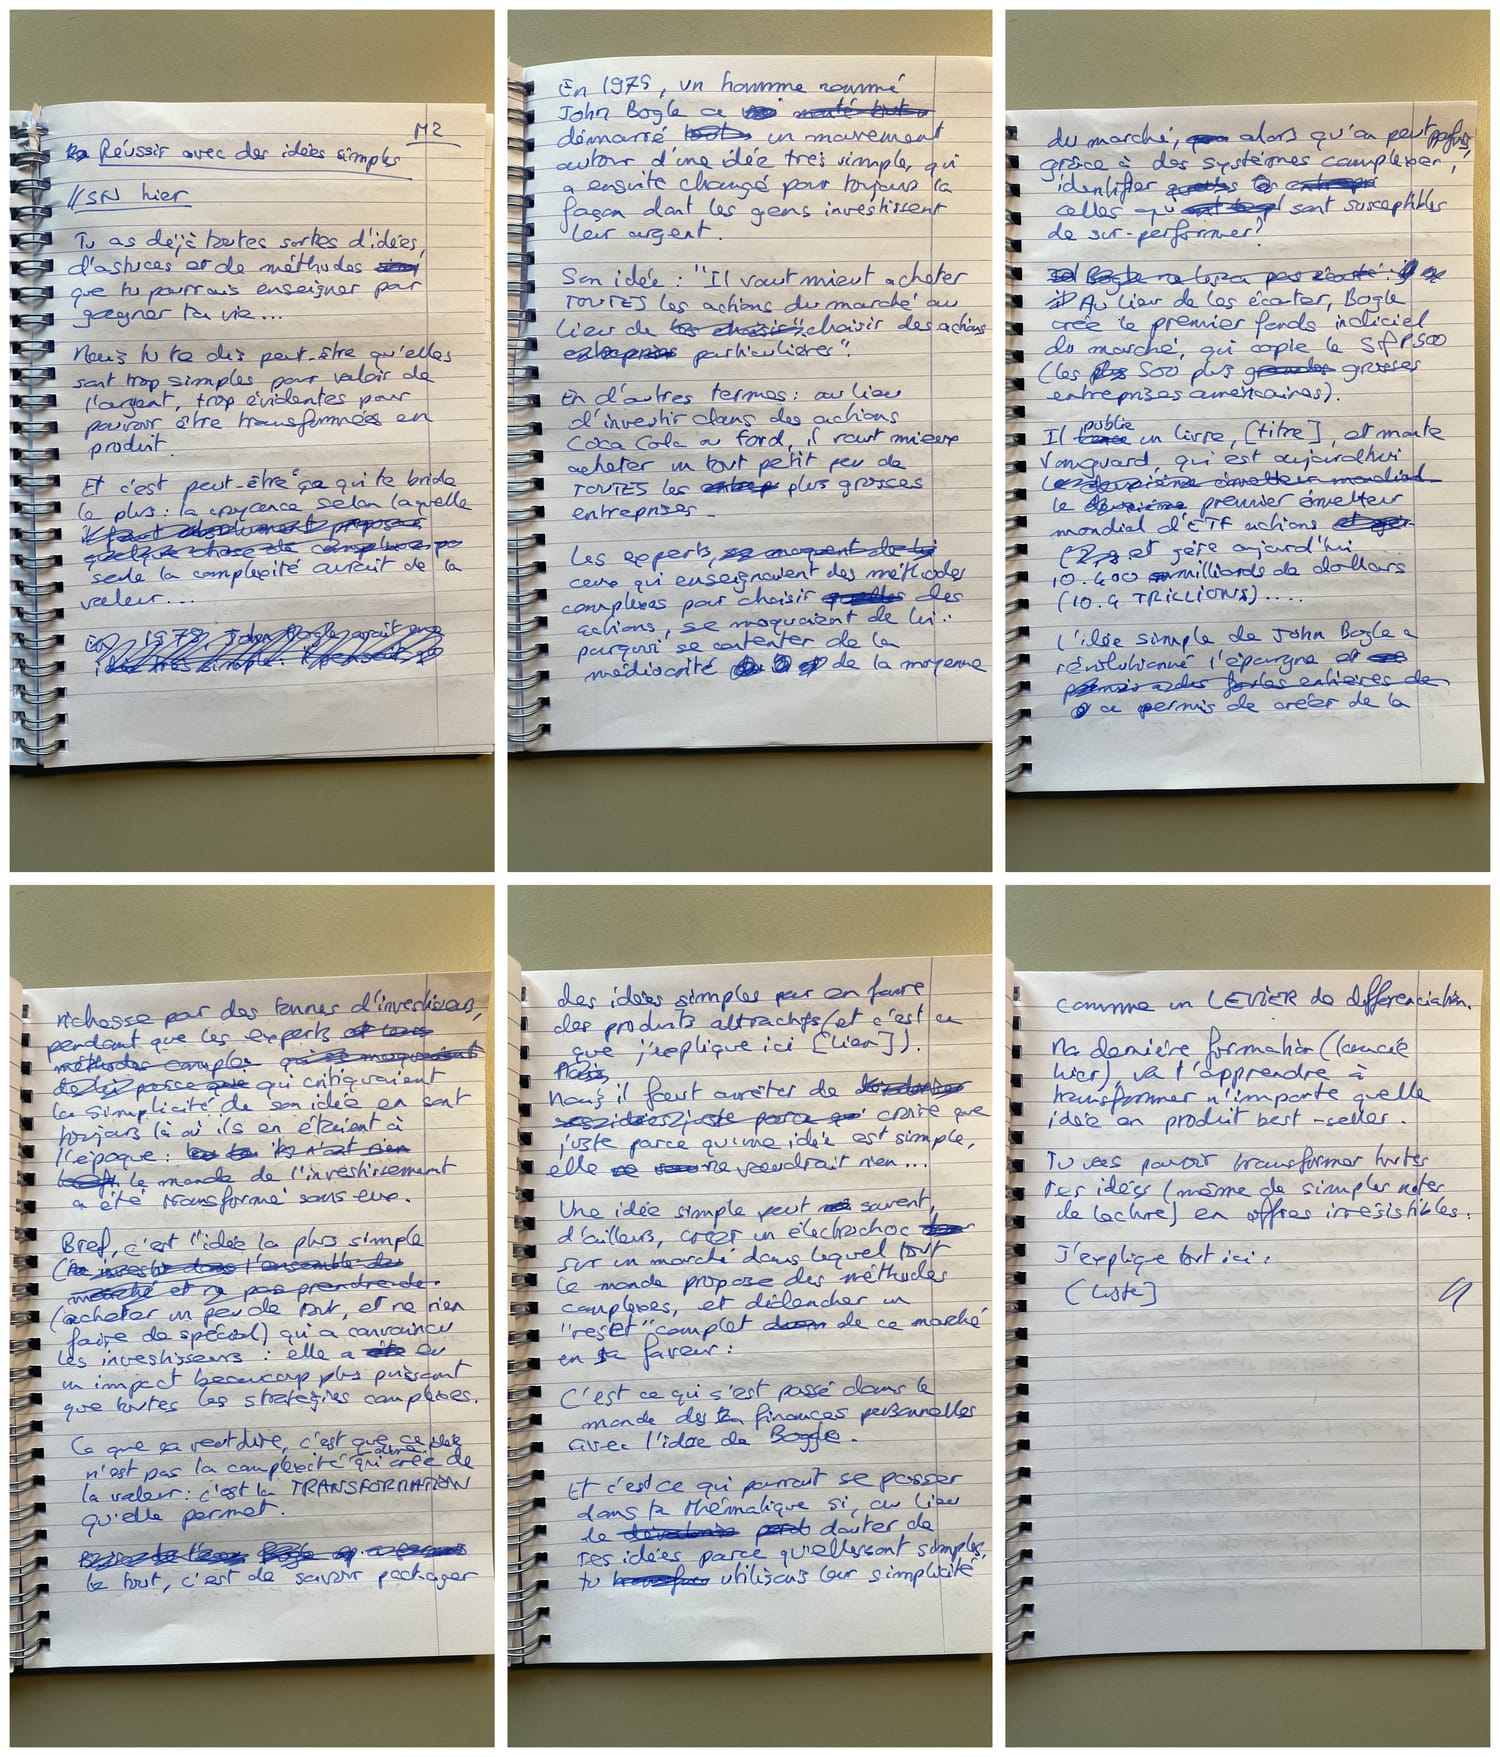 M2
Réussir avec des idées simples
//SN hier
Tu as déjà toutes sortes d'idées,
d'astuces et de méthodes
que tu pourrais enseigner pour
gagner ta vie...
Mais tu te dis peut-être qu'elles
sont trop simples pour valoir de
l'argent, trop évidentes pour
pouvoir être transformées en
produit.
Et c'est peut-être ça qui te bride
le plus : la croyance selon laquelle
il faut absolument proposer
quelque chose de complexe
seule la complexité aurait de la
valeur...
En 1975, John Bogle avait une
idée très simple.
En 1975, un homme nommé
John Bogle a
démarré tout un mouvement
autour d'une idée très simple, qui
a ensuite changé pour toujours la
façon dont les gens investissent
leur argent.
Son idée : "Il vaut mieux acheter
TOUTES les actions du marché au
lieu de les choisir" choisir des actions
entreprises particulières".
En d'autres termes : au lieu
d'investir dans des actions
Coca Cola ou Ford, il vaut mieux
acheter un tout petit peu de
TOUTES les entrep plus grosses
entreprises.
Les experts, se moquent de lui
ceux qui enseignaient des méthodes
complexes pour choisir quelles des
actions, se moquaient de lui :
pourquoi se contenter de la
médiocrité de la moyenne
du marché, alors qu'on peut parfois,
grâce à des systèmes complexes,
identifier quelles entrepri
celles qui sont susceptibles
de sur-performer?
Bogle ne les a pas écouté :
Au lieu de les écouter, Bogle
crée le premier fonds indiciel
du marché, qui copie le S&P500
(les plus 500 plus grandes grosses
entreprises américaines).
Il publie un livre, [titre], et monte
Vanguard, qui est aujourd'hui
le deuxième émetteur mondial
le deuxième premier émetteur
mondial d'ETF actions
et gère aujourd'hui
10.400 milliards de dollars
(10.4 TRILLIONS).....
L'idée simple de John Bogle a
révolutionné l'épargne et
permis à des foules entières de
a permis de créer de la
richesse par des tonnes d'investisseurs,
pendant que les experts et leurs
méthodes complex qui se moquaient
de lui parce que qui critiquaient
la simplicité de son idée en sont
toujours là où ils en étaient à
l'époque : ils n'ont rien
le monde de l'investissement
a été transformé sans eux.
Bref, c'est l'idée la plus simple
(investir dans l'ensemble du
marché et ne pas prendre de
(acheter un peu de tout, et ne rien
faire de spécial) qui a convaincu
les investisseurs : elle a été eu
un impact beaucoup plus puissant
que toutes les stratégies complexes.
Ce que ça veut dire, c'est que ce
n'est pas la complexité qui crée de
la valeur : c'est la TRANSFORMATION
qu'elle permet.
le tout, c'est de savoir packager
des idées simples pour en faire
des produits attractifs (et c'est ce
que j'explique ici [lien]).
Mais,
Mais il faut arrêter de
ses idées juste parce qu' croire que
juste parce qu'une idée est simple,
elle ne vaudrait rien...
Une idée simple peut souvent,
d'ailleurs, créer un électrochoc
sur un marché dans lequel tout
le monde propose des méthodes
complexes, et déclencher un
"reset" complet de ce marché
en sa faveur :
C'est ce qui s'est passé dans le
monde des finances personnelles
avec l'idée de Boggle.
Et c'est ce qui pourrait se passer
dans ta thématique si, au lieu
de douter de
tes idées parce qu'elles sont simples,
tu utilisais leur simplicité
comme un LEVIER de différenciation.
Ma dernière formation (lancée
hier) va t'apprendre à
transformer n'importe quelle
idée en produit best-seller.
Tu vas pouvoir transformer toutes
tes idées (même de simples notes
de lecture) en offres irrésistibles.
J'explique tout ici :